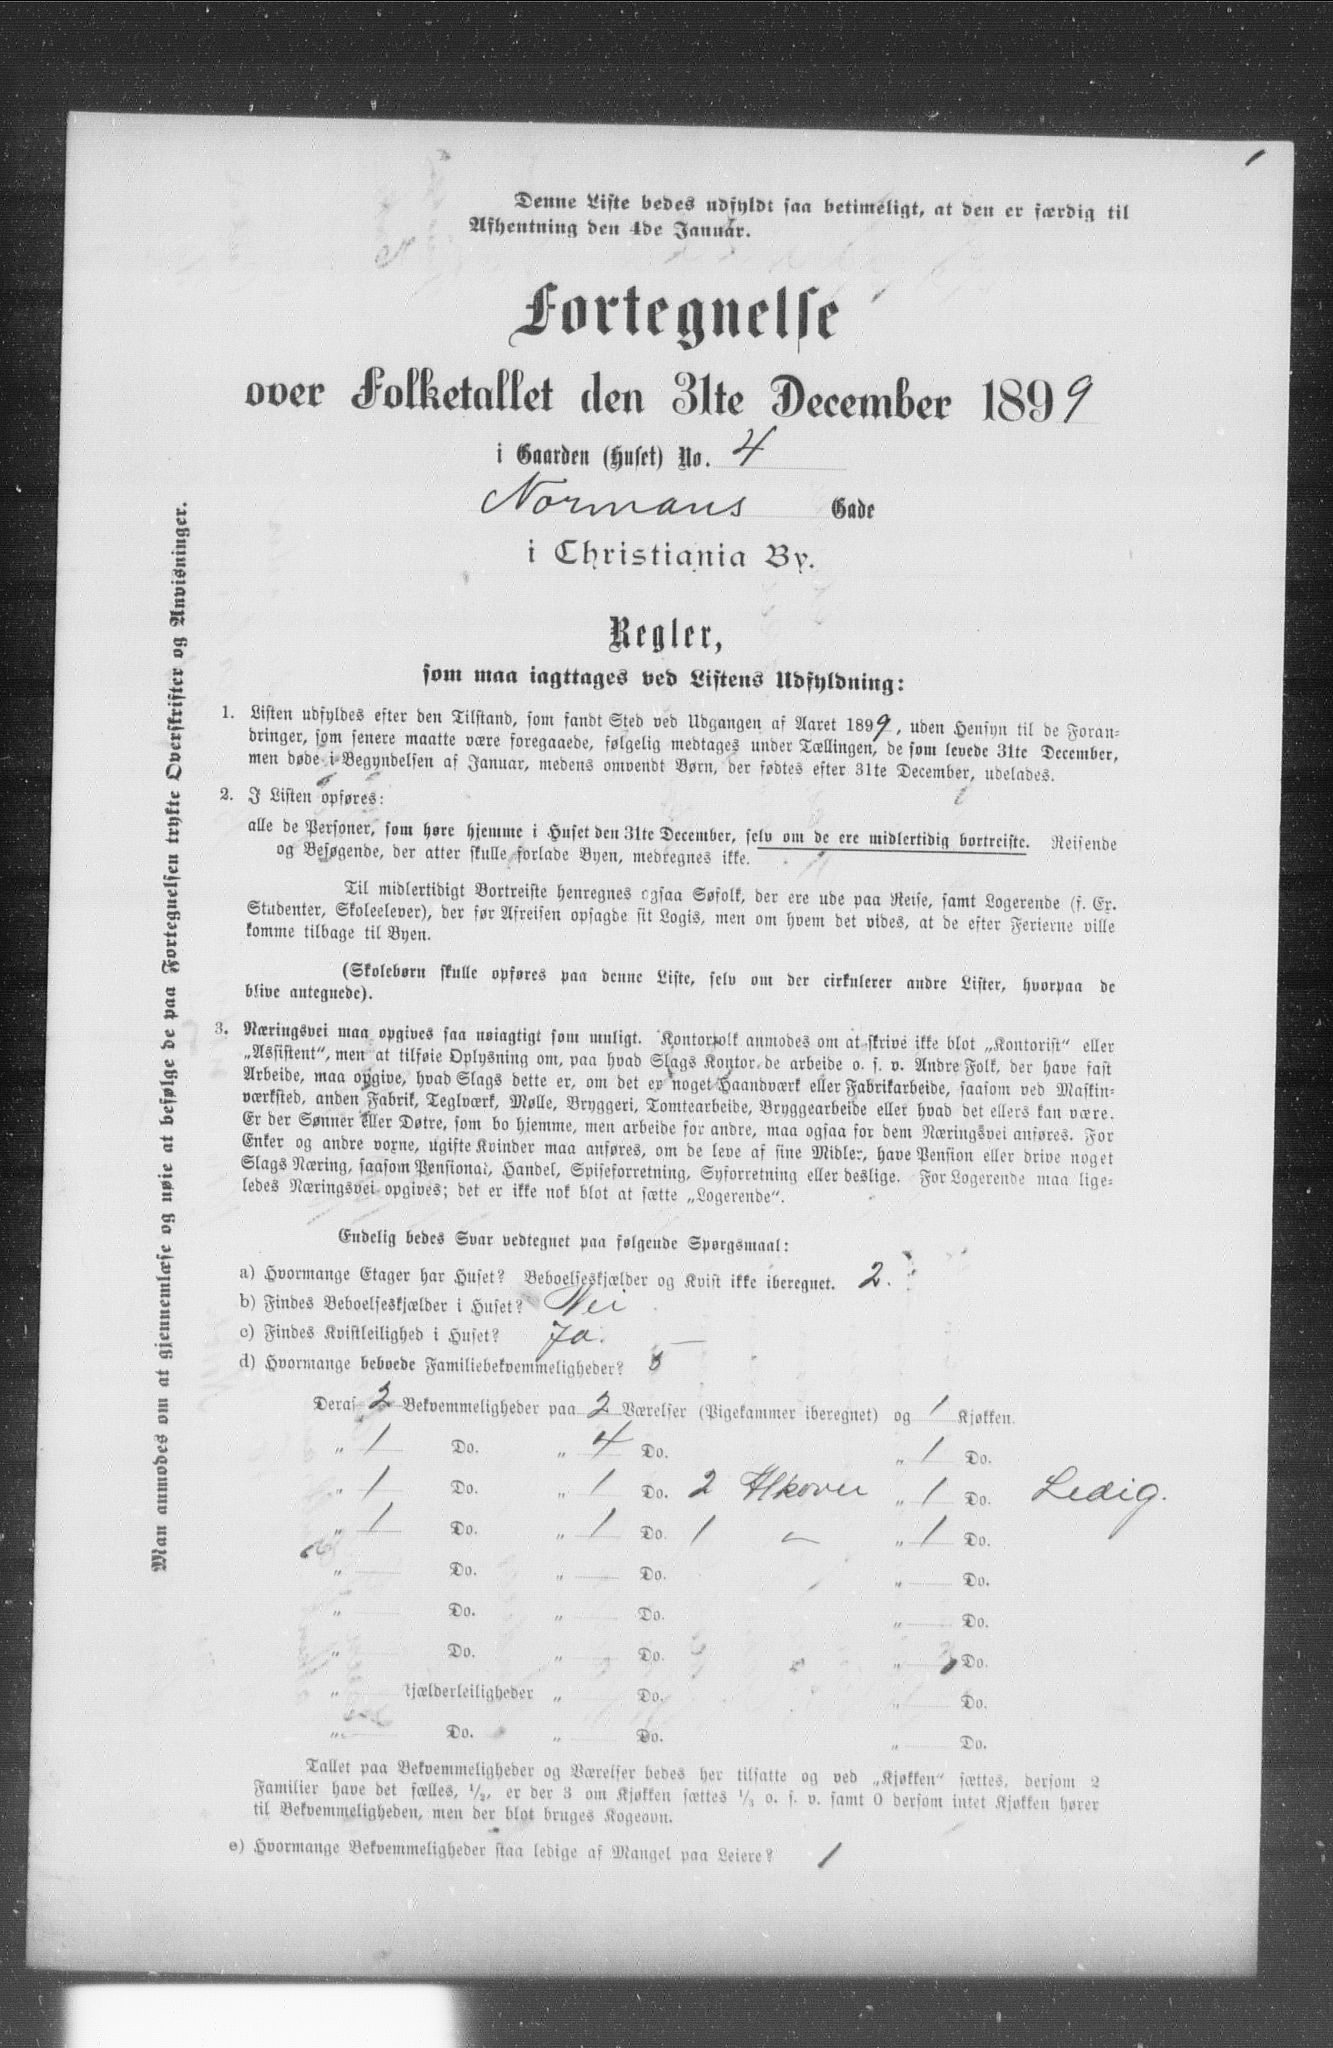 Denne Liste bedes udfyldt saa betimeligt, at den er færdig til
Afhentning den 4de Januar.
Fortegnelse
over Folketallet den 31te December 1899
i Gaarden (Huset) No. 4
Normans Gade
i Christiania By.
Regler,
som maa iagttages ved Listens Udfyldning:
1. Listen udfyldes efter den Tilstand, som fandt Sted ved Udgangen af Aaret 1899, uden Hensyn til de Foran-
dringer, som senere maatte være foregaaede, følgelig medtages under Tællingen, de som levede 31te December,
men døde i Begyndelsen af Januar, medens omvendt Børn, der fødtes efter 31te December, udelades.
2. I Listen opføres:
alle de Personer, som høre hjemme i Huset den 31te December, selv om de ere midlertidig bortreiste. Reisende
og Besøgende, der atter skulle forlade Byen, medregnes ikke.
Til midlertidigt Bortreiste henregnes ogsaa Søfolk, der ere ude paa Reise, samt Logerende (f. Ex.
Studenter, Skoleelever), der før Afreisen opsagde sit Logis, men om hvem det vides, at de efter Ferierne ville
komme tilbage til Byen.
(Skolebørn skulle opføres paa denne Liste, selv om der cirkulerer andre Lister, hvorpaa de
blive antegnede).
3. Næringsvei maa opgives saa nøiagtigt som muligt. Kontorfolk anmodes om at skrive ikke blot „Kontorist“ eller
„Assistent“, men at tilføie Oplysning om, paa hvad Slags Kontor de arbeide o. s. v. Andre Folk, der have fast
Arbeide, maa opgive, hvad Slags dette er, om det er noget Haandværk eller Fabrikarbeide, saasom ved Maskin-
værksted, anden Fabrik, Teglværk, Mølle, Bryggeri, Tomtearbeide, Bryggearbeide eller hvad det ellers kan være.
Er der Sønner eller Døtre, som bo hjemme, men arbeide for andre, maa ogsaa for dem Næringsvei anføres. For
Enker og andre vorne, ugifte Kvinder maa anføres, om de leve af sine Midler, have Pension eller drive noget
Slags Næring, saasom Pensionat, Handel, Spiseforretning, Syforretning eller deslige. For Logerende maa lige-
ledes Næringsvei opgives; det er ikke nok blot at sætte „Logerende“.
Endelig bedes Svar vedtegnet paa følgende Spørgsmaal:
a) Hvormange Etager har Huset? Beboelseskjælder og Kvist ikke iberegnet. 2.
b) Findes Beboelseskjælder i Huset? Nei
c) Findes Kvistleilighed i Huset? Ja.
d) Hvormange beboede Familiebekvemmeligheder? 5
Deraf 2 Bekvemmeligheder paa 2 Værelser (Pigekammer iberegnet) og 1 Kjøkken.
„ 1 Do. „ 4 Do. „ 1 Do.
„ 1 Do. „ 1 Do. 2 Alkover „ 1 Do. Ledig.
„ 1 Do. „ 1 Do. 1 – „ 1 Do.
„ Do. „ Do. „ Do.
„ Do. „ Do. „ Do.
„ Do. „ Do. „ Do.
„ Kjælderleiligheder „ Do. „ Do.
„ Do. „ Do. „ Do.
Tallet paa Bekvemmeligheder og Værelser bedes her tilsatte og ved „Kjøkken“ sættes, dersom 2
Familier have det fælles, 1/2, er der 3 om Kjøkken sættes 1/3 o. s. v. samt 0 dersom intet Kjøkken hører
til Bekvemmeligheden, men der blot bruges Kogeovn.
e) Hvormange Bekvemmeligheder staa ledige af Mangel paa Leiere? 1
Man anmodes om at gjennemlæse og nøie at befølge de paa Fortegnelsen trykte Overskrifter og Anvisninger.